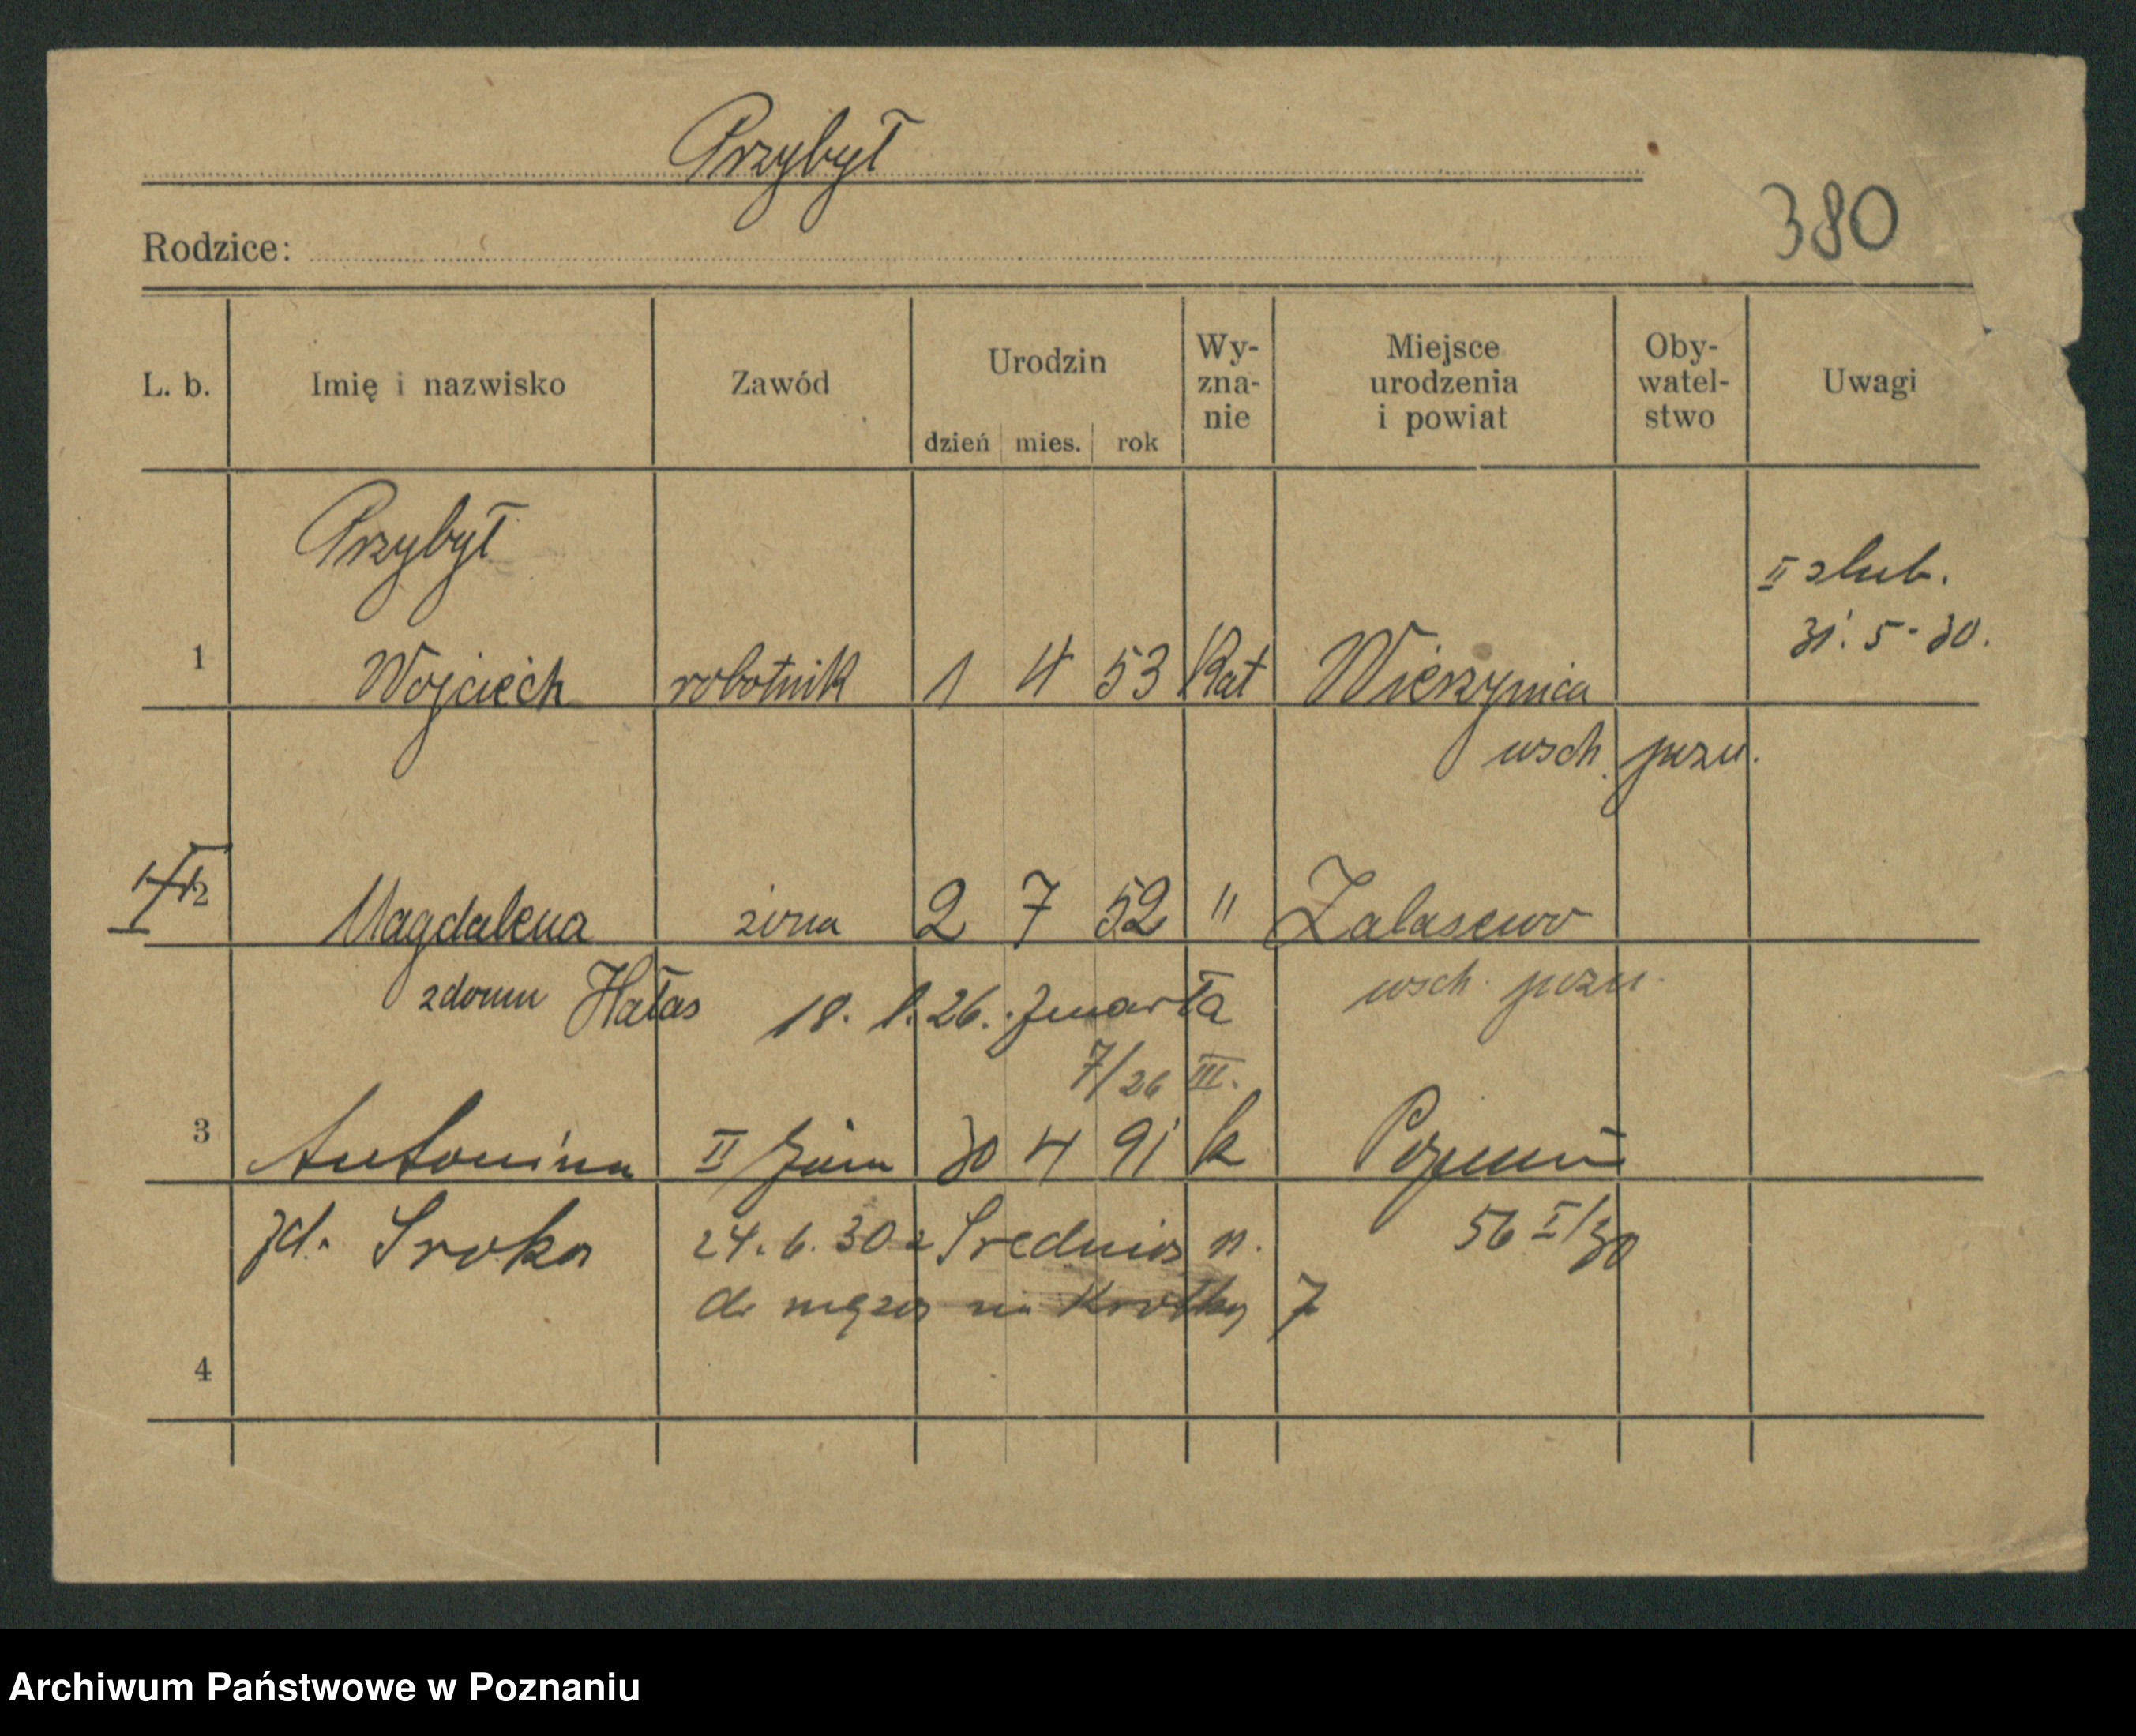 Przybył
380
Rodzice:
L. b. Imię i nazwisko Zawód Urodzin dzień mies. rok Wy-zna-nie Miejsce urodzenia i powiat Oby-watel-stwo Uwagi
Przybył
II slub.
31. 5 - 30.
1 Wojciech robotnik 1 4 53 Kat Wierzynica
wsch. pozn.
2 Magdalena żona 2 7 52 " Zalasewo
zdomu Hałas 18. 1. 26. zmarła wsch. pozn.
7/26 III.
3 Antonina II żona 30 4 91 k Poznań
zd. Sroka 24. 6. 30 z Srednia 11. 56 I/30
do męża na Krótką 7
4
Archiwum Państwowe w Poznaniu